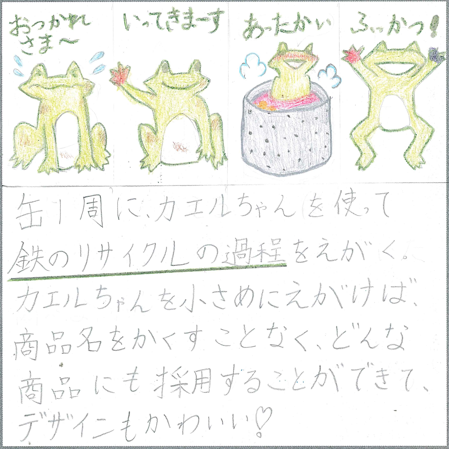 おつかれ
さま～
いってきまーす
あったかい
ふっかつ!
缶1周に、カエルちゃんを使って
鉄のリサイクルの過程をえがく。
カエルちゃんを小さめにえがけば、
商品名をかくすことなく、どんな
商品にも採用することができて、
デザインもかわいい♡